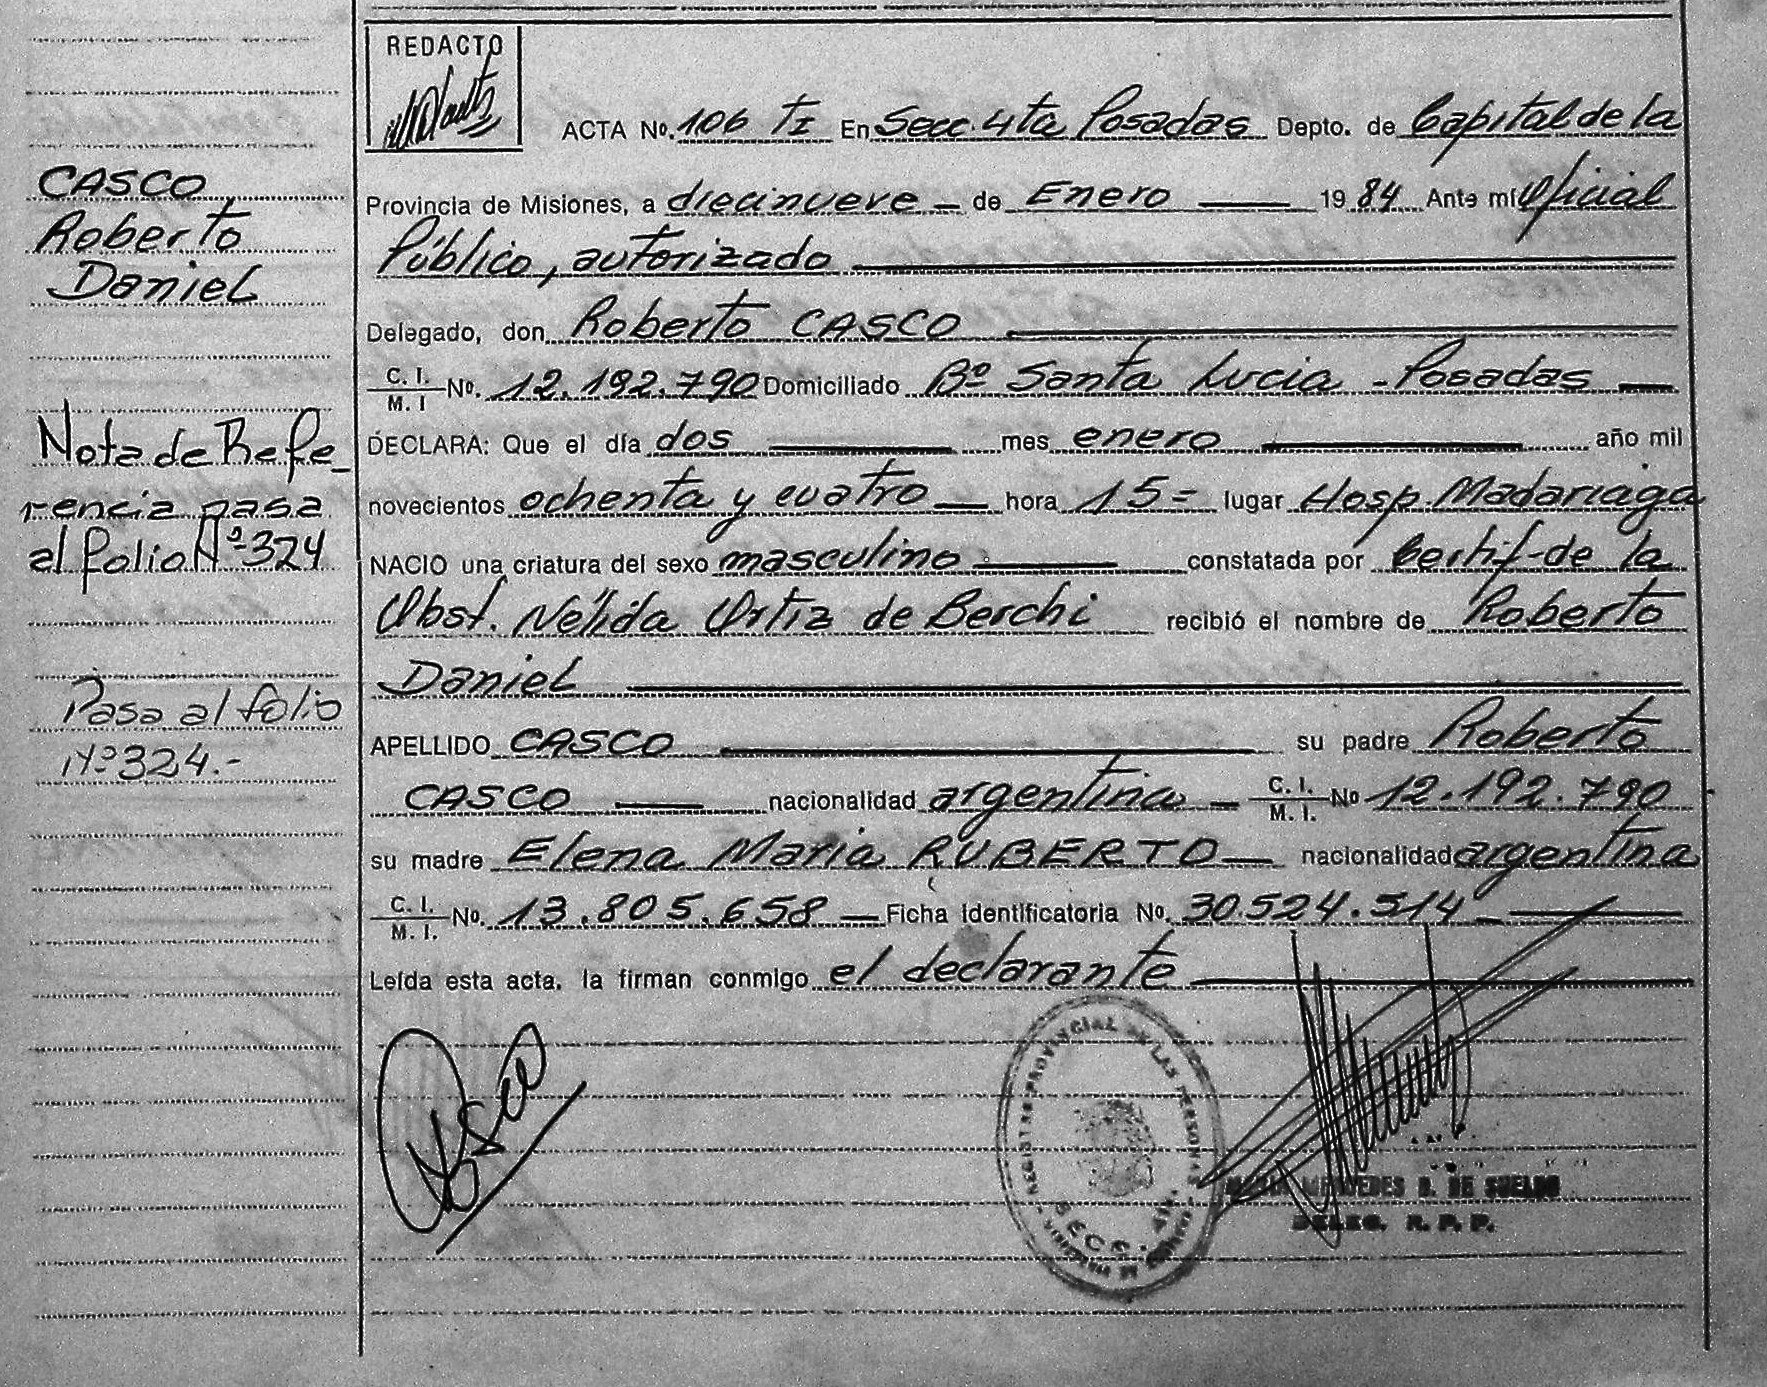 REDACTO
ACTA No. 106 TI En Secc. 4ta Posadas Depto. de Capital de la
Provincia de Misiones, a diecinueve - de Enero 1984 Ante mi Oficial
Público, autorizado
Delegado, don Roberto CASCO
C. I. / M. I No. 12.192.790 Domiciliado Bº Santa Lucia - Posadas
DECLARA: Que el día dos mes enero año mil
novecientos ochenta y cuatro hora 15= lugar Hosp. Madariaga
NACIO una criatura del sexo masculino constatada por Certif. de la
Obst. Nélida Ortiz de Berchi recibió el nombre de Roberto
Daniel
APELLIDO CASCO su padre Roberto
CASCO nacionalidad argentina C. I. / M. I. No 12.192.790
su madre Elena Maria RUBERTO nacionalidad argentina
C. I. / M. I. No. 13.805.658 Ficha Identificatoria No. 30.524.514
Leída esta acta, la firman conmigo el declarante
CASCO
Roberto
Daniel
Nota de Refe-
rencia pasa
al folio Nº 324
Pasa al folio
Nº 324.-
Casco
REGISTRO PROVINCIAL DE LAS PERSONAS
SECC. 4ta.
PROVINCIA DE MISIONES
MARIA MERCEDES D. DE SUELDO
DELEG. R. P. P.